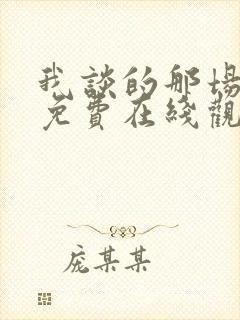 我談的那場
免費在綫觀
庞某某